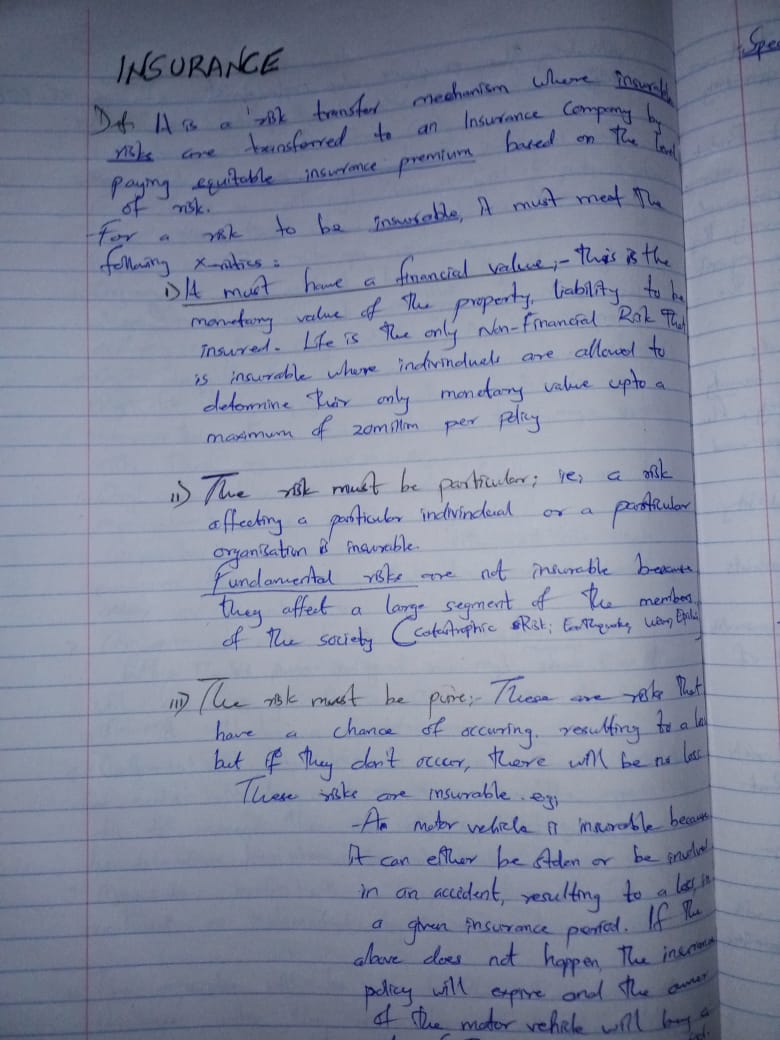 Spec
INSURANCE
Def. It is a risk transfer mechanism where insurable
risks are transferred to an Insurance Company by
paying equitable insurance premium based on the level
of risk.
For a risk to be insurable, it must meet the
following x-ristics:
i) It must have a financial value;- this is the
monetary value of the property, liability to be
insured. Life is the only Non-financial Risk that
is insurable where indivinduals are allowed to
determine their only monetary value upto a
maximum of 20million per policy
ii) The risk must be particular; ie, a risk
affecting a particular indivindual or a particular
organisation is insurable.
Fundamental risks are not insurable because
they affect a large segment of the members
of the society (catastrophic Risk; Earthquake,
iii) The risk must be pure;- These are risks that
have a chance of occuring, resulting to a loss
but if they don't occur, there will be no loss
These risks are insurable. eg;
-An motor vehicle is insurable because
it can either be stolen or be involved
in an accident, resulting to a loss, in
a given insurance period. If the
above does not happen, the insurance
policy will expire and the owner
of the motor vehicle will buy a